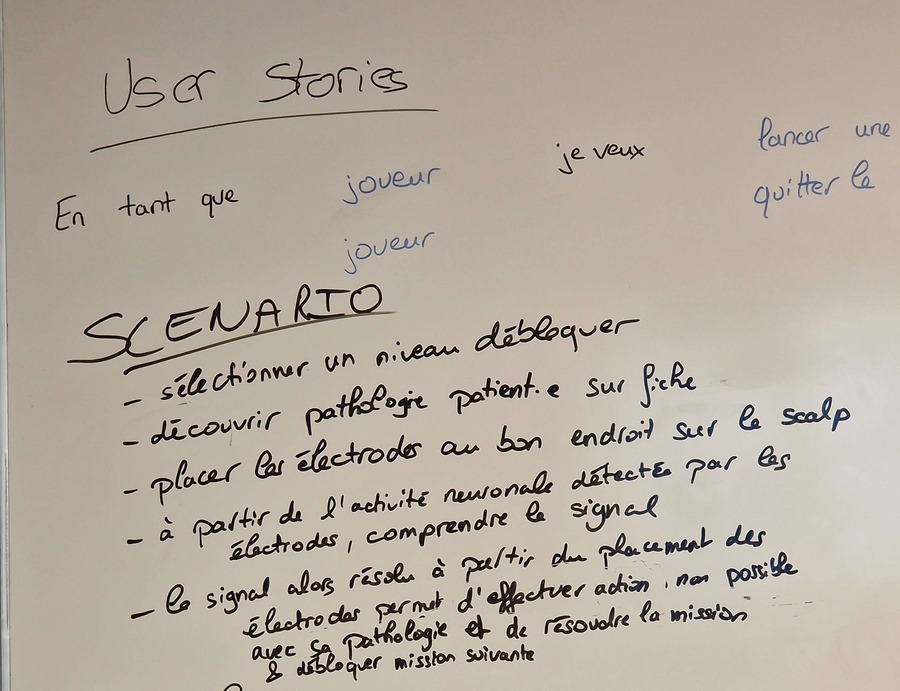 User Stories
En tant que joueur je veux lancer une
joueur quitter le
SCENARIO
- sélectionner un niveau débloquer
- découvrir pathologie patient.e sur fiche
- placer les électrodes au bon endroit sur le scalp
- à partir de l'activité neuronale détectée par les
électrodes, comprendre le signal
- le signal alors résolu à partir du placement des
électrodes permet d'effectuer action, non possible
avec sa pathologie et de résoudre la mission
& débloquer mission suivante